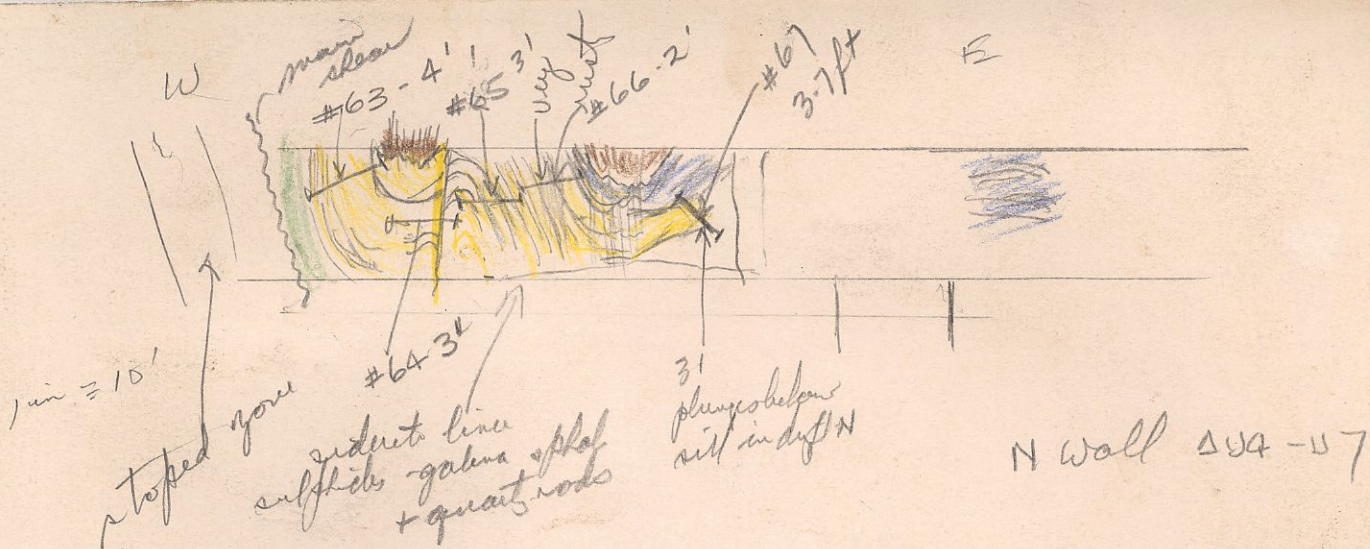 W
main
shear
#63 - 4'
#65 3'
very
rust
#66 - 2'
#67
3.7ft
E
1 in = 10'
stoped zone
#64-3'
siderite lime
sulphides - galena + sphal
+ quartz rods
3'
plunges below
sill in drift N
N Wall